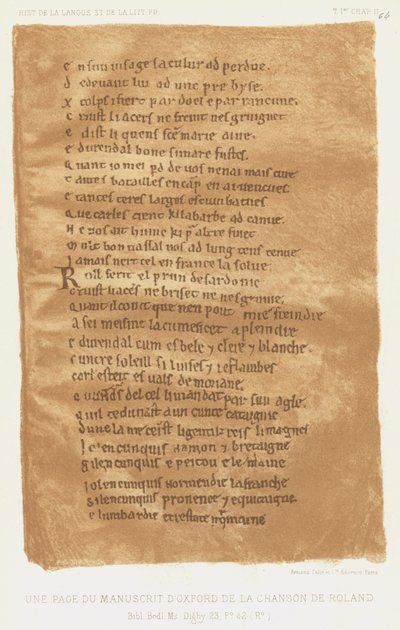 HIST DE LA LANGUE ET DE LA LITT. FR.
T. Iᵉʳ CHAP. II
64
e n sun uisage sa culur ad perdue.
d edeuant lui ad une perre byse.
x colps i fiert par doel e par rancune.
c ruist li acers ne freint nesgruignet
e dist li quens sce marie aiue.
e durendal bone si mare fustes.
q uant io mei pd de uos nen ai mais cure
t antes batailles en cāp en ai uencues
e tantes teres larges escumbatues
q ue carles tient ki la barbe ad canue.
n e uos ait hume ki p altre fuiet
m ult bon uassal uos ad lung tens tenue
j amais niert tel en france la solue
R oll ferit el perun de sardonie
c ruist li acers ne briset ne nesgrunie,
q uant il co uit que nen pout mie freindre
a sei meisme la cumencet a pleindre
e durendal cum es bele ⁊ clere ⁊ blanche.
c untre soleill si luises ⁊ reflambes
carl esteit es uals de moriane
del cel li mandat par sun agle
quil te dunast a un cunte cataignie
dunc la me ceinst li gentilz reis li magnes
jo len cunquis namon ⁊ bretaigne
si len cunquis e peitou e le maine
jo len cunquis normendie la franche
si len cunquis prouence ⁊ equitaigne
e lumbardie e trestute romaine
Armand Colin et Cⁱᵉ, Editeurs, Paris
UNE PAGE DU MANUSCRIT D'OXFORD DE LA CHANSON DE ROLAND
Bibl. Bodl. Ms. Digby 23, Fº 42 (Rº)